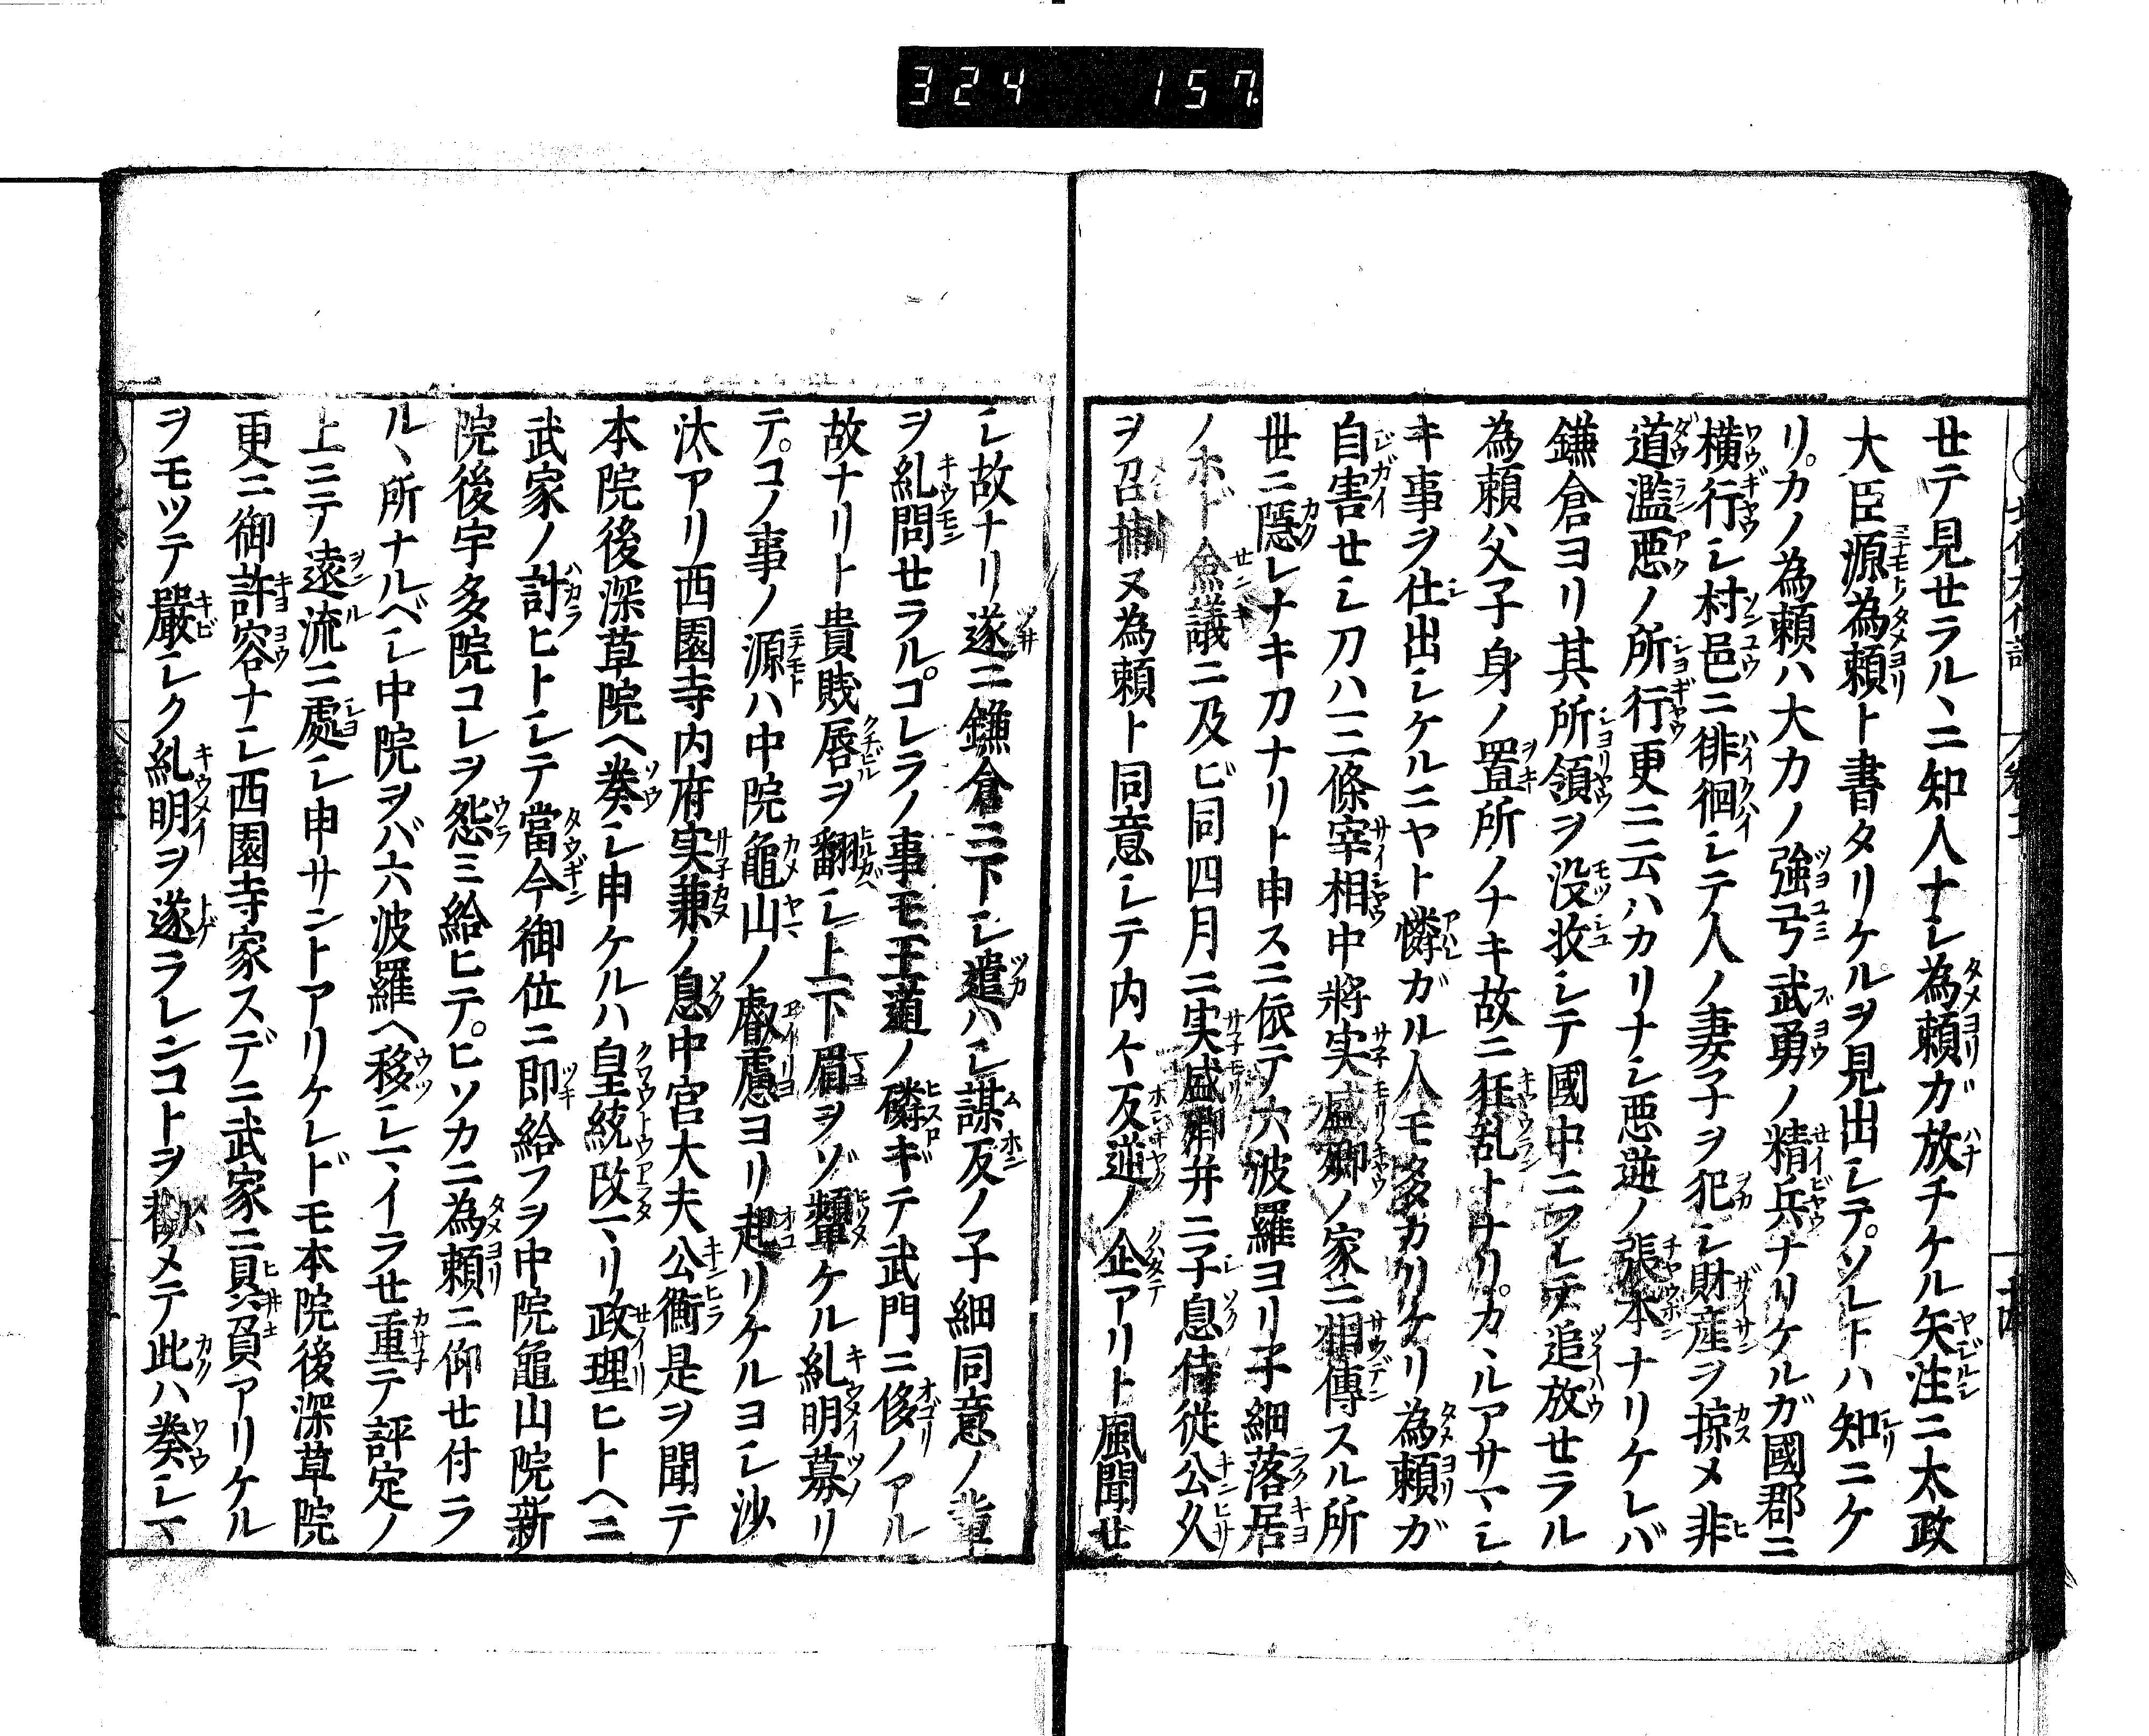 324 157.
世テ見セラルヽニ知人ナシ為頼ガ放チケル矢注ニ太政
大臣源為頼ト書タリケルヲ見出シテ。ソレトハ知ニケ
リ。カノ為頼ハ大力ノ強弓武勇ノ精兵ナリケルガ國郡ニ
横行シ村邑ニ徘徊シテ人ノ妻子ヲ犯シ財産ヲ掠メ非
道濫悪ノ所行更ニ云ハカリナシ悪逆ノ張本ナリケレバ
鎌倉ヨリ其所領ヲ没收シテ國中ニフレテ追放セラル
為頼父子身ノ置所ノナキ故ニ狂乱トナリ。カヽルアサマシ
キ事ヲ仕出シケルニヤト憐ガル人モ多カリケリ為頼ガ
自害セシ刀ハ三條宰相中將実盛卿ノ家ニ相傳スル所
世ニ隱レナキ刀ナリト申スニ依テ六波羅ヨリ子細落居
ノホド僉議ニ及ビ同四月ニ実盛卿并ニ子息侍従公久
ヲ召捕ヌ為頼ト同意シテ内々反逆ノ企アリト風聞セ
シ故ナリ遂ニ鎌倉ニ下シ遣ハシ謀反ノ子細同意ノ輩
ヲ糺問セラル。コレラノ事モ王道ノ磷ギテ武門ニ侈ノアル
故ナリト貴賎唇ヲ翻シ上下眉ヲゾ顰ケル糺明募リ
テ。コノ事ノ源ハ中院龜山ノ叡慮ヨリ起リケルヨシ沙
汰アリ西園寺内府実兼ノ息中宮大夫公衡是ヲ聞テ
本院後深草院ヘ奏シ申ケルハ皇統改マリ政理ヒトヘニ
武家ノ計ヒトシテ當今御位ニ即給フヲ中院龜山院新
院後宇多院コレヲ怨ミ給ヒテ。ヒソカニ為頼ニ仰セ付ラ
ルヽ所ナルベシ中院ヲバ六波羅ヘ移シマイラセ重テ評定ノ
上ニテ遠流ニ處シ申サントアリケレドモ本院後深草院
更ニ御許容ナシ西園寺家スデニ武家ニ贔負アリケル
ヲモツテ嚴シク糺明ヲ遂ラレンコトヲ勸メテ此ハ奏シマ